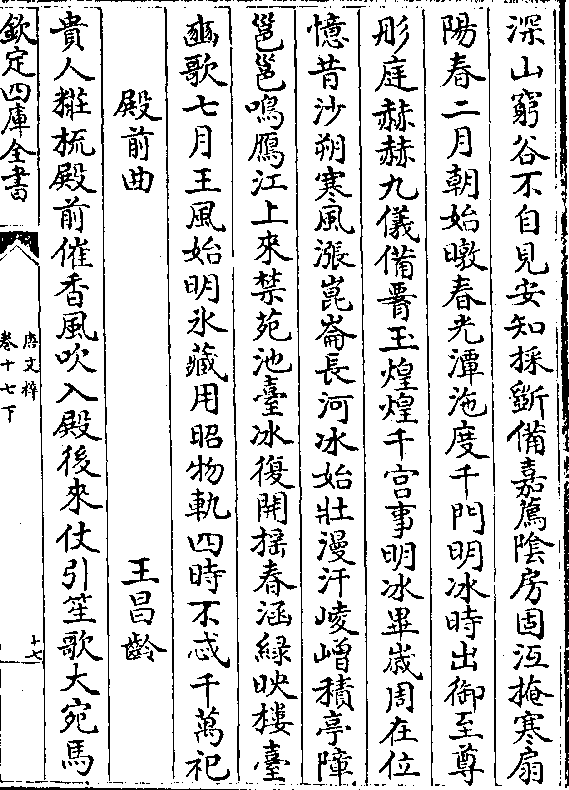 深山窮谷不自見安知採斲備嘉薦陰房固沍掩寒扇
陽春二月朝始暾春光潭沲度千門明冰時出御至尊
彤庭赫赫九儀備腎玉煌煌千宫事明冰畢歳周在位
憶昔沙朔寒風漲崑崙長河冰始壯漫汗崚嶒積亭障
嗈嗈鳴鴈江上來禁苑池臺冰復開揺春涵緑映樓臺
豳歌七月王風始明氷藏用昭物軌四時不忒千萬祀
殿前曲 王昌齡
貴人粧梳殿前催香風吹入殿後來仗引笙歌大宛馬
欽定四庫全書
唐文粹
卷十七下
十七